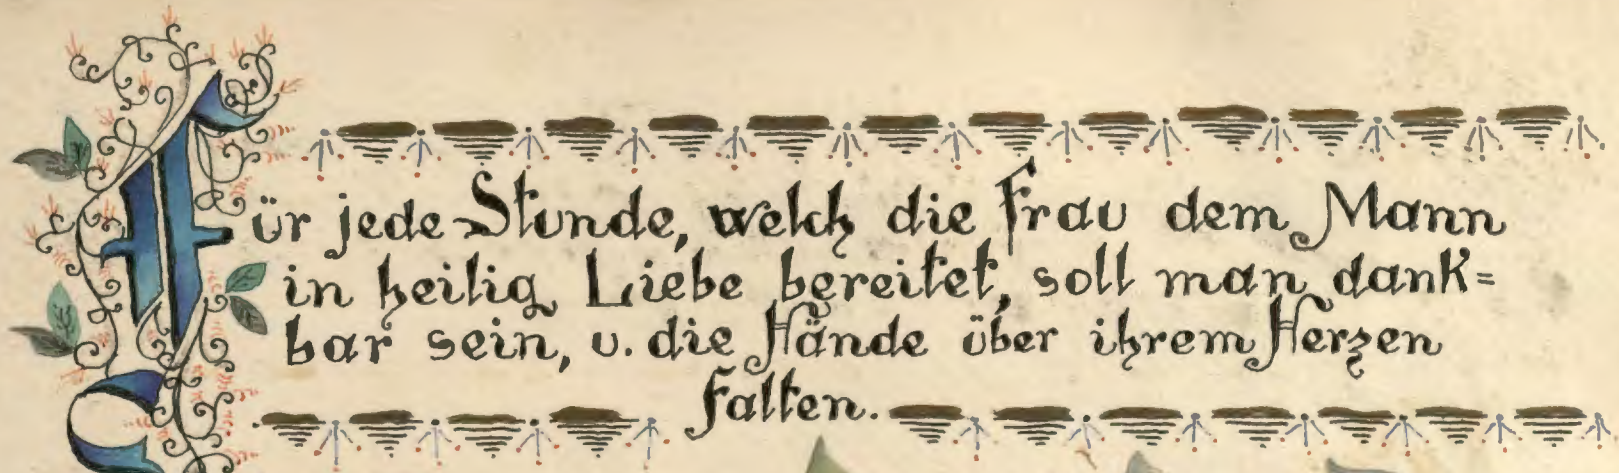 Für jede Stunde, welch die Frau dem Mann
in heilig Liebe bereitet, soll man dank=
bar sein, u. die Hände über ihrem Herzen
falten.